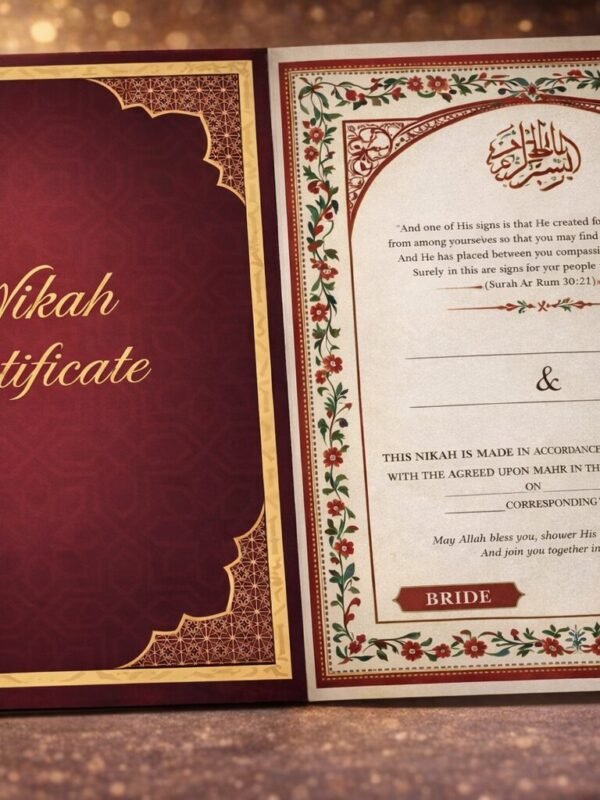 Nikah
tificate
"And one of His signs is that He created fo
from among yourseves so that you may find
And He has placed between you compassi
Surely in this are signs for yor people
(Surah Ar Rum 30:21)
&
THIS NIKAH IS MADE IN ACCORDANCE
WITH THE AGREED UPON MAHR IN TH
ON
CORRESPONDING
May Allah bless you, shower His
And join you together in
BRIDE